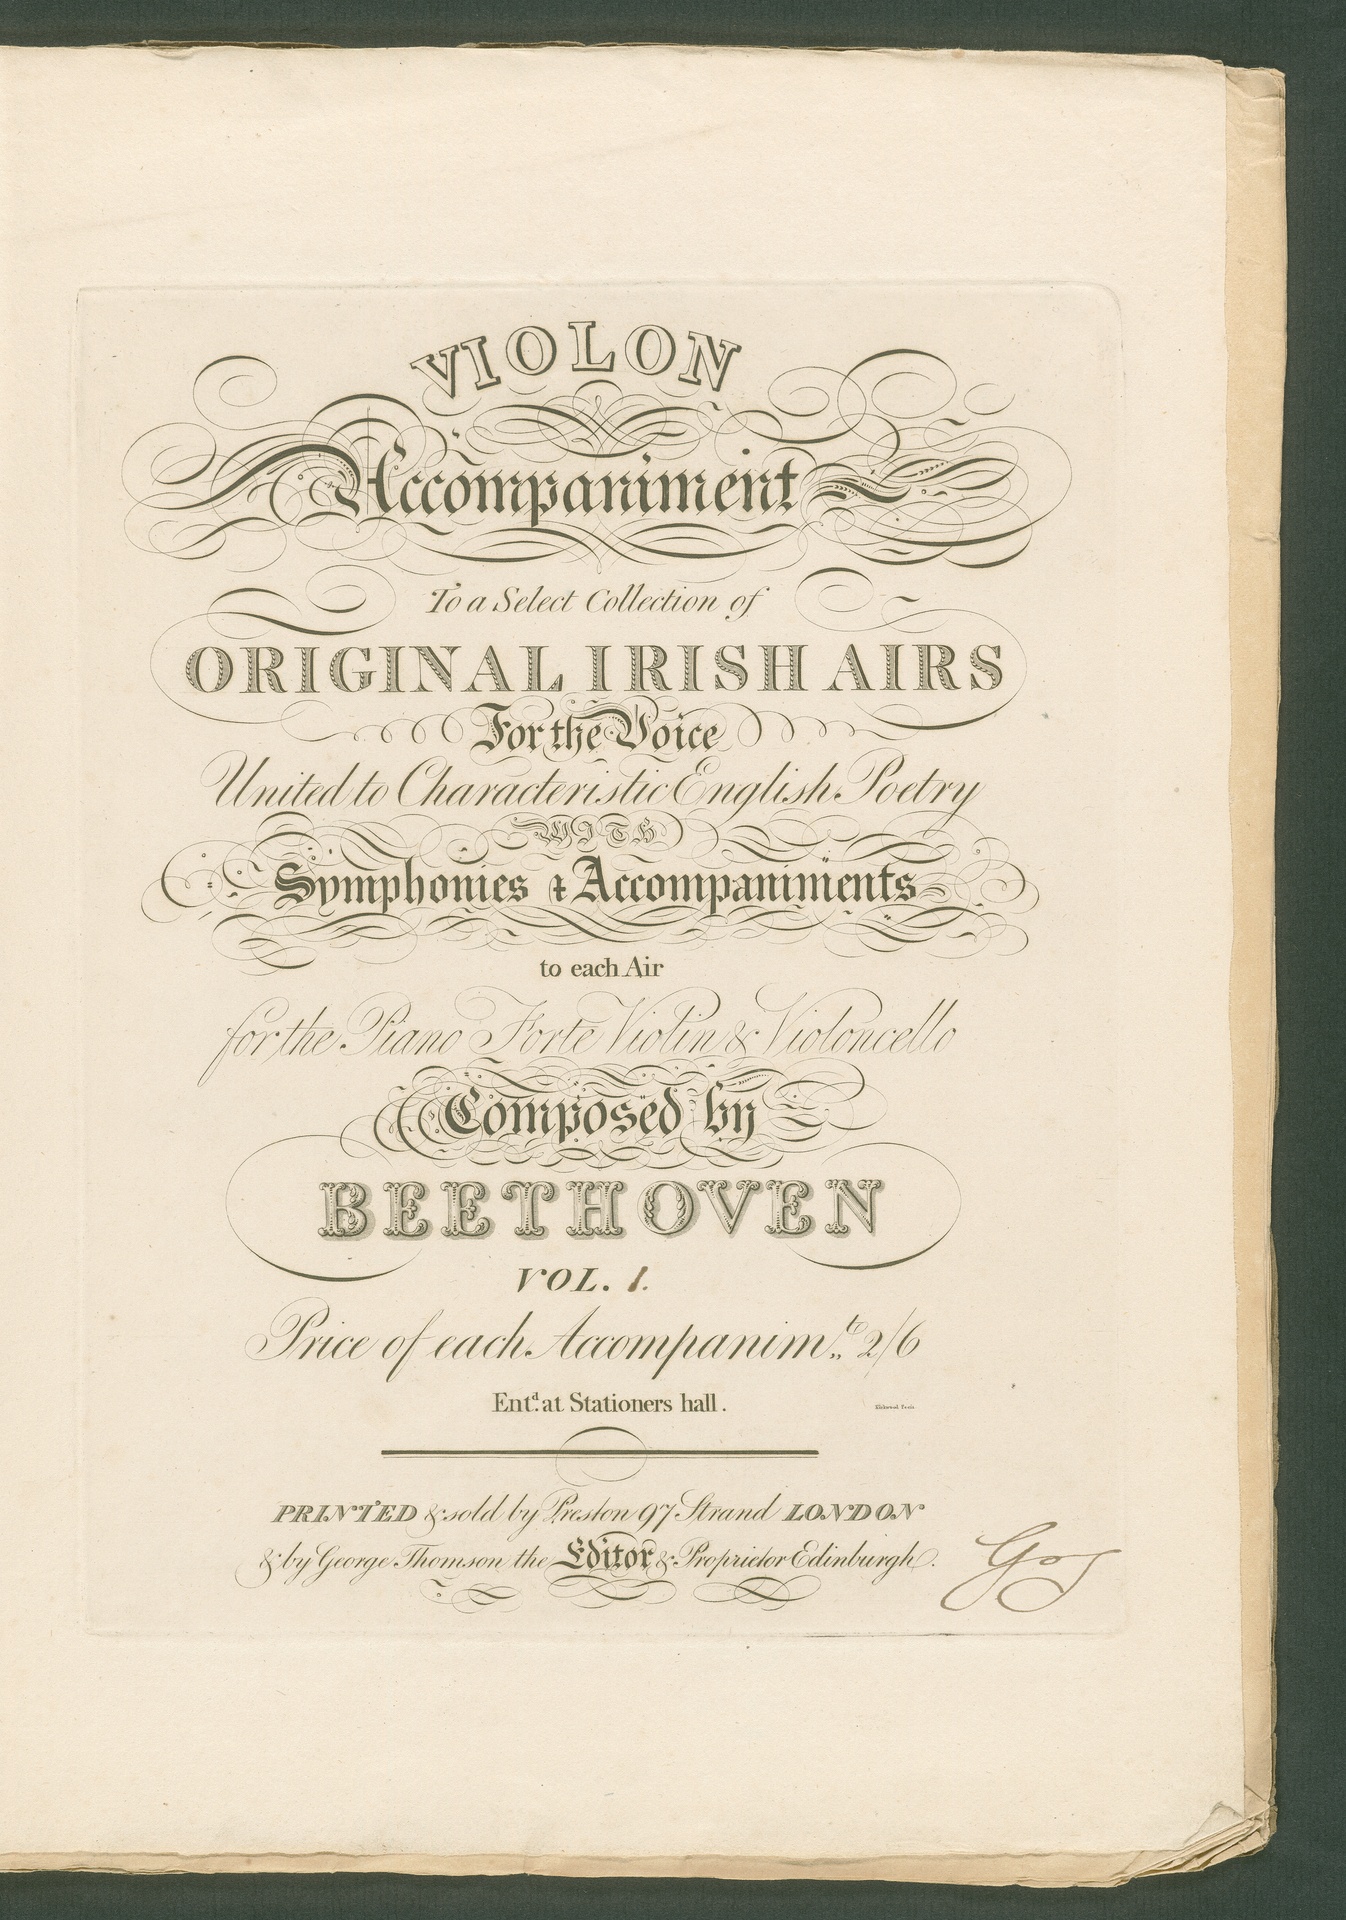 VIOLON
Accompaniment
To a Select Collection of
ORIGINAL IRISH AIRS
For the Voice
United to Characteristic English Poetry
WITH
Symphonies & Accompaniments
to each Air
for the Piano Forte Violin & Violoncello
Composed by
BEETHOVEN
VOL. 1.
Price of each Accompanim.t 2/6
Ent.d at Stationers hall.
PRINTED & sold by Preston 97 Strand LONDON
& by George Thomson the Editor & Proprietor Edinburgh.